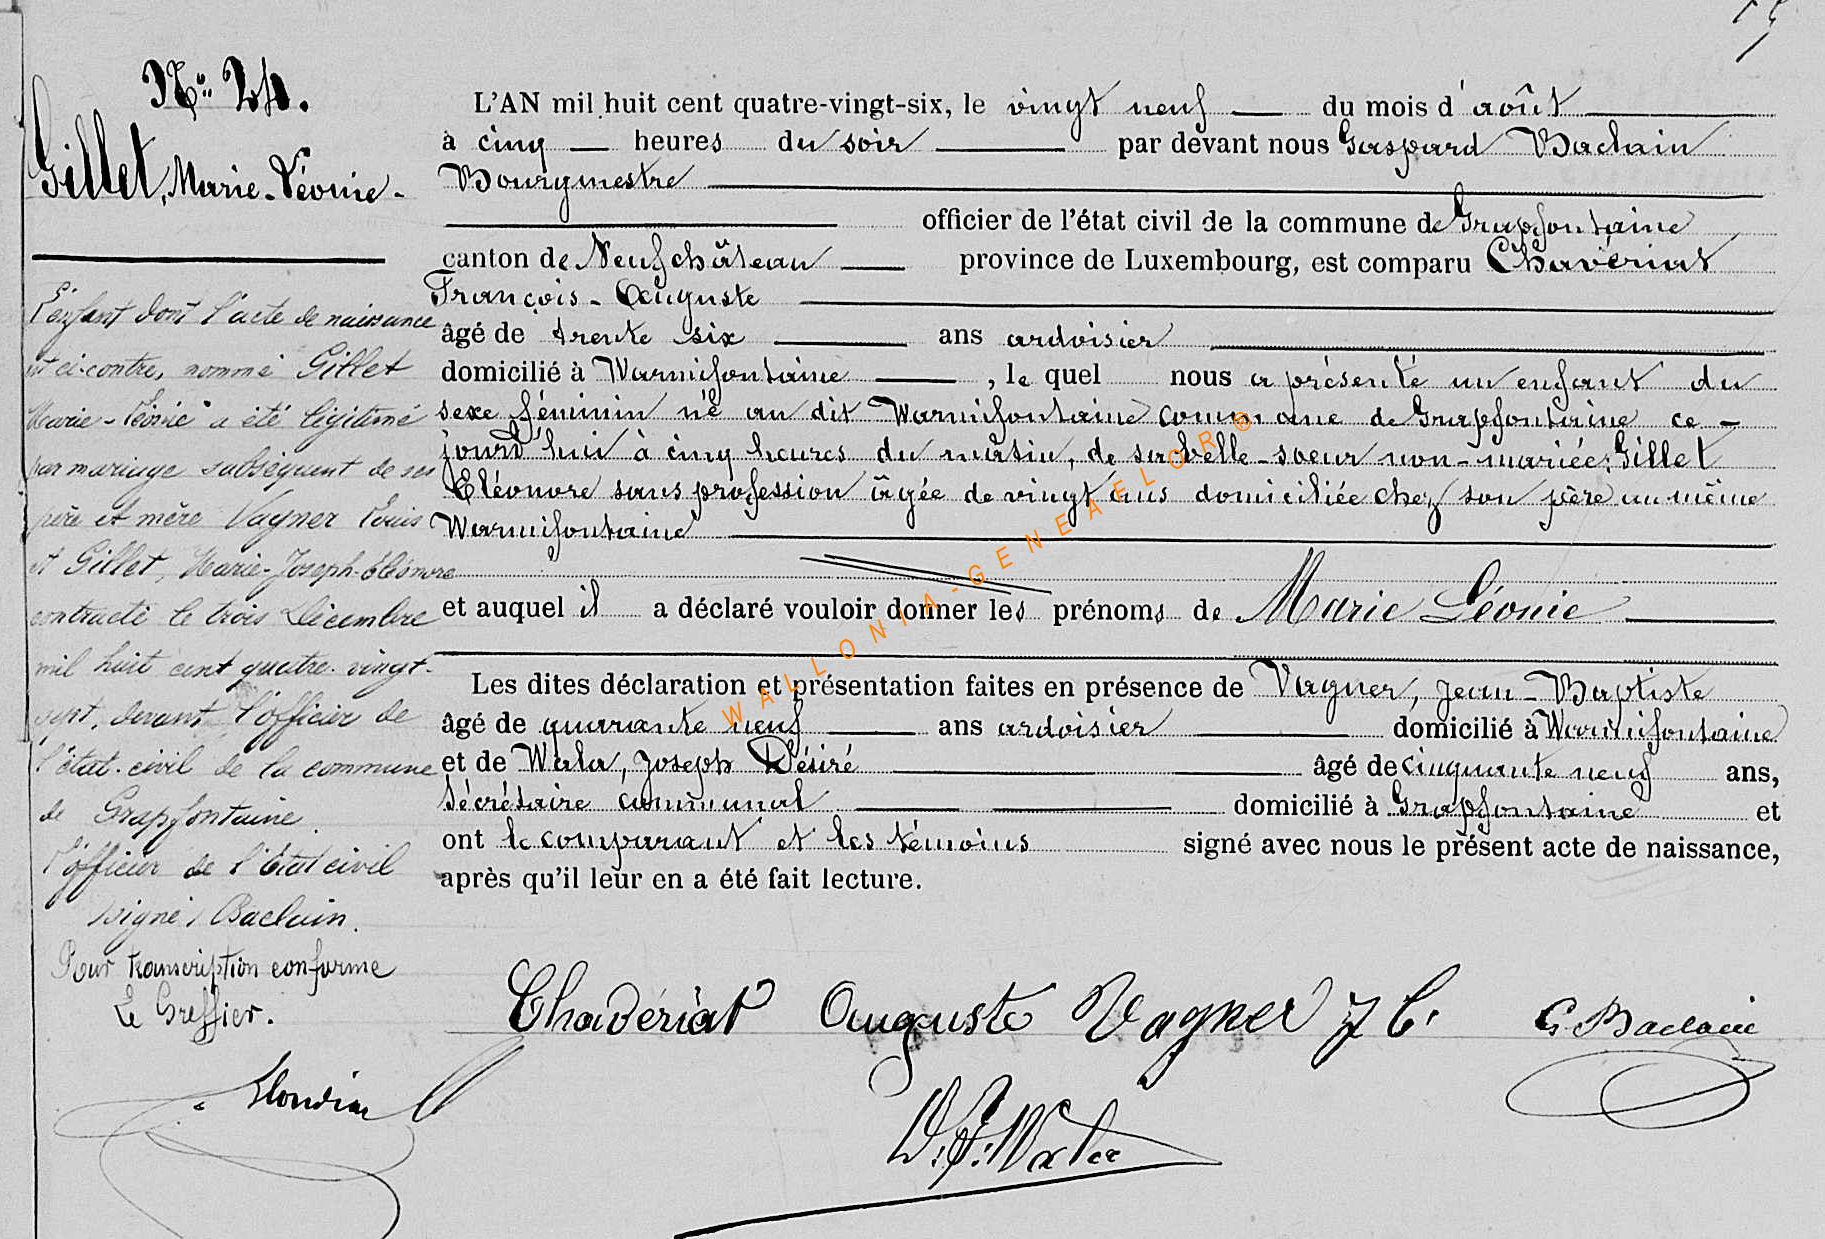 Nº 24.
Gillet, Marie-Léonie-
L'enfant dont l'acte de naissance
est ci-contre, nommé Gillet
Marie-Léonie a été légitimé
par mariage subséquent de ses
père et mère Vagner Louis
et Gillet, Marie-Joseph-Eléonore
contracté le trois Décembre
mil huit cent quatre-vingt-
sept, devant l'officier de
l'état-civil de la commune
de Grapfontaine.
L'officier de l'Etat civil
signé, Baclain.
Pour transcription conforme
Le Greffier.
L'AN mil huit cent quatre-vingt-six, le vingt neuf du mois d'août
à cinq heures du soir par devant nous Gaspard Baclain
Bourgmestre
officier de l'état civil de la commune de Grapfontaine
canton de Neufchâteau province de Luxembourg, est comparu Chavériat
François-Auguste
âgé de trente six ans ardoisier
domicilié à Warmifontaine, le quel nous a présenté un enfant du
sexe féminin né au dit Warmifontaine commune de Grapfontaine ce-
jourd'hui à cinq heures du matin, de sa belle-soeur non-mariée: Gillet
Eléonore sans profession âgée de vingt ans domiciliée chez son père au même
Warmifontaine
et auquel il a déclaré vouloir donner les prénoms de Marie Léonie
Les dites déclaration et présentation faites en présence de Vagner, Jean-Baptiste
âgé de quarante neuf ans ardoisier domicilié à Warmifontaine
et de Wala, Joseph Désiré âgé de cinquante neuf ans,
Sécrétaire communal domicilié à Grapfontaine et
ont le comparant et les témoins signé avec nous le présent acte de naissance,
après qu'il leur en a été fait lecture.
Chavériat Auguste Vagner J B. G. Baclain
D. J. Wala
WALLONIA-GENEAELOR ®